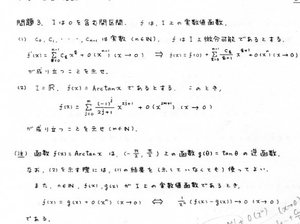 問題3. Iは0を含む開区間. fはI上の実数値函数.
(1) C₀, C₁, …, Cₙ₋₁は実数 (n∈ℕ), fはI上微分可能であるとする.
f'(x) = Σ_{k=0}^{n-1} C_k x^k + o(xⁿ⁻¹) (x→0) ⇒ f(x) = f(0) + Σ_{k=0}^{n-1} C_k/(k+1) x^{k+1} + o(xⁿ) (x→0)
が成り立つことを示せ.
(2) I=ℝ, f(x) = Arctan x であるとする. このとき,
f(x) = Σ (-1)^j/(2j+1) x^{2j+1} + o(x^{2n+1}) (x→0)
が成り立つことを示せ (n∈ℕ).
(注) 函数 f(x) = Arctan x は, (-π/2, π/2) 上の函数 g(θ) = tan θ の逆函数.
なお, (2)を示す際には, (1)の結果を (示していなくても) 使ってよい.
また, n∈ℕ, f(x), g(x) がI上の実数値函数であるとき,
f(x) = g(x) + o(xⁿ) (x→0) ⇔ 1/xⁿ (f(x) - g(x)) → 0 (x→0)
である.